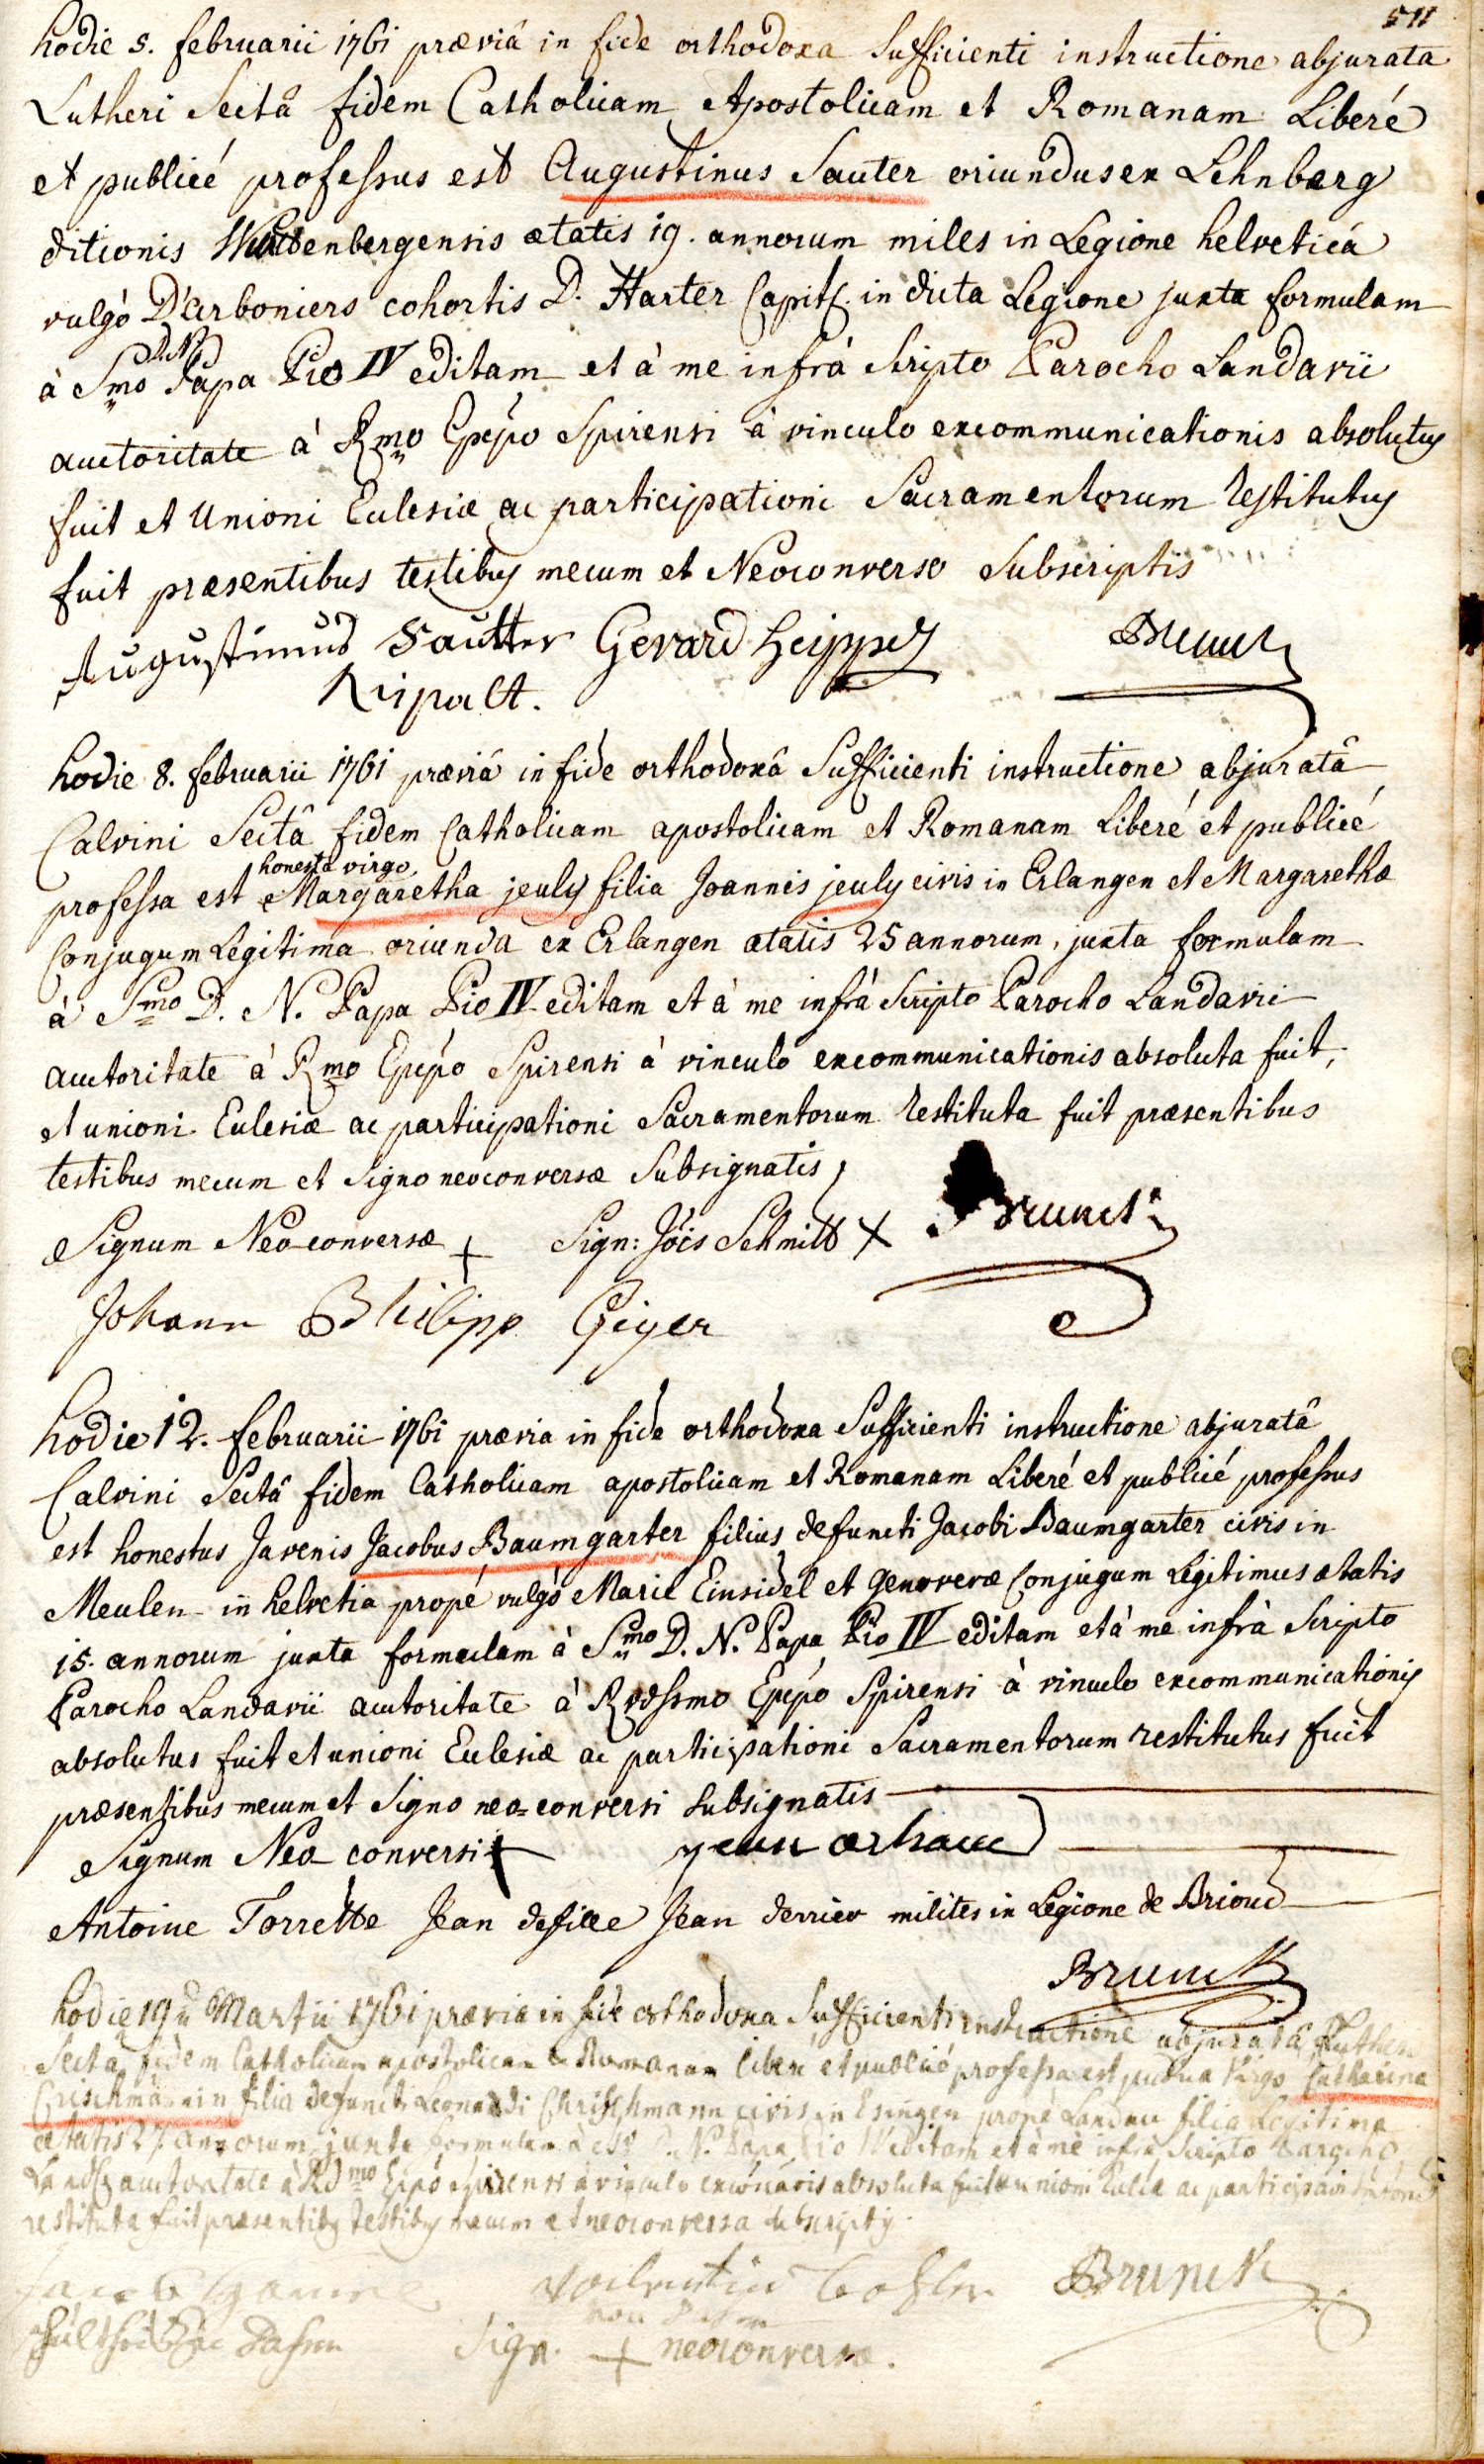 511
hodie 5. februarii 1761 prævia in fide orthodoxa sufficienti instructione abjurata
Lutheri Sectâ fidem Catholicam Apostolicam et Romanam Liberé
et publicé professus est Augustinus Sauter oriundus ex Lehnberg
ditionis Wirtenbergensis ætatis 19. annorum miles in Legione helveticâ
vulgò D'arboniers cohortis D. Harter Capit. in dicta Legione juxta formulam
à Smo D.N. Papa Pio IV editam et à me infrà Scripto Parocho Landavii
auctoritate à Rmo Epépo Spirensi à vinculo excommunicationis absolutus
fuit et Unioni Eclesiæ ac participationi Sacramentorum restitutus
fuit præsentibus testibus mecum et Neoconverso Subscriptis
Augustinus Sautter Gerard heippes Brunck
Ripalt.
hodie 8. februarii 1761 præviâ in fide orthodoxâ Sufficienti instructione abjuratâ
Calvini Sectâ fidem Catholicam apostolicam et Romanam Liberé et publicé
professa est honesta virgo Margaretha jeuly filia Joannis jeuly civis in Erlangen et Margarethæ
Conjugum Legitima oriunda ex Erlangen ætatis 25 annorum, juxta formulam
à Smo D. N. Papa Pio IV editam et à me infrà Scripto Parocho Landavii
auctoritate à Rmo Epépo Spirensi à vinculo excommunicationis absoluta fuit,
et unioni Eclesiæ ac participationi Sacramentorum restituta fuit præsentibus
testibus mecum et Signo neoconversæ Subsignatis,
Signum Neo conversæ + Sign: Jöis Schmitt X Brunck
Johann Philipp Geiger
hodie 12. februarii 1761 prævia in fide orthodoxa Sufficienti instructione abjuratâ
Calvini Sectâ fidem Catholicam apostolicam et Romanam Liberé et publicé professus
est honestus Juvenis Jacobus Baumgarter filius defuncti Jacobi Baumgarter civis in
Meulen in helvetia propé vulgò Marie Einsidel et Genoveræ Conjugum Legitimus ætatis
15. annorum juxta formulam à Smo D. N. Papa Pio IV editam et à me infrà Scripto
Parocho Landavii auctoritate à Rvdssmo Epépo Spirensi à vinculo excommunicationis
absolutus fuit et unioni Eclesiæ ac participationi Sacramentorum restitutus fuit
præsentibus mecum et Signo neo-conversi Subsignatis
Signum Neo conversi +
Antoine Torrette Jean defille Jean derrier milites in Legione de Brioud
Brunck
hodie 19 Martii 1761 prævia in fide orthodoxa Sufficienti instructione abjuratâ Lutheri
Sectâ fidem Catholicam apostolicam et Romanam liberé et publicé professa est pudica Virgo Catharina
Crischmännin filia defuncti Leonardi Chrischmann civis in Esingen propé Landau filia legitima
ætatis 27 annorum, juxta formulam à D. N. Papa Pio IV editam et à me infrà Scripto Parocho
auctoritate à Rdmo Epépo Spirensi à vinculo absoluta fuit unioni ac
restituta fuit præsentibus testibus mecum et neoconversa subscriptis.
Valentin Brunck
Sign. + neoconversæ.